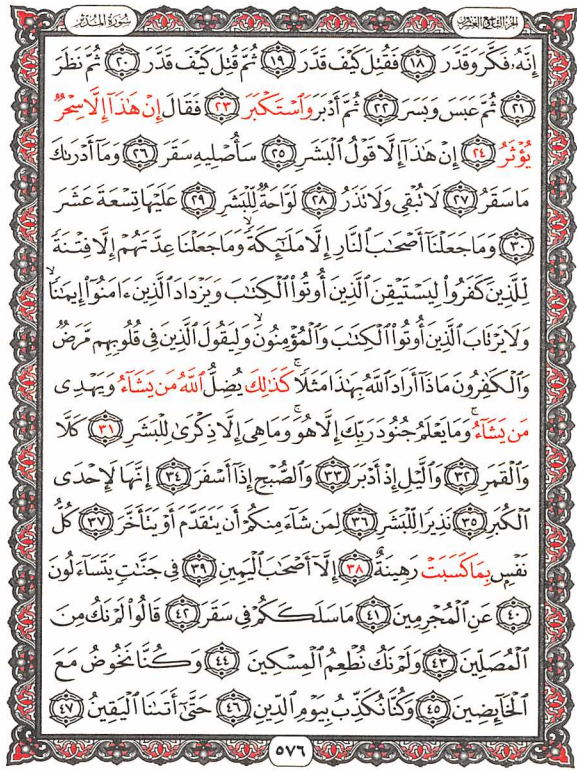 سُورَةُ المُدَّثِّر
إِنَّهُۥ فَكَّرَ وَقَدَّرَ ١٨ فَقُتِلَ كَيْفَ قَدَّرَ ١٩ ثُمَّ قُتِلَ كَيْفَ قَدَّرَ ٢٠ ثُمَّ نَظَرَ
٢١ ثُمَّ عَبَسَ وَبَسَرَ ٢٢ ثُمَّ أَدْبَرَ وَٱسْتَكْبَرَ ٢٣ فَقَالَ إِنْ هَٰذَآ إِلَّا سِحْرٌ
يُؤْثَرُ ٢٤ إِنْ هَٰذَآ إِلَّا قَوْلُ ٱلْبَشَرِ ٢٥ سَأُصْلِيهِ سَقَرَ ٢٦ وَمَآ أَدْرَىٰكَ
مَا سَقَرُ ٢٧ لَا تُبْقِى وَلَا تَذَرُ ٢٨ لَوَّاحَةٌ لِّلْبَشَرِ ٢٩ عَلَيْهَا تِسْعَةَ عَشَرَ
٣٠ وَمَا جَعَلْنَآ أَصْحَٰبَ ٱلنَّارِ إِلَّا مَلَٰٓئِكَةً ۙ وَمَا جَعَلْنَا عِدَّتَهُمْ إِلَّا فِتْنَةً
لِّلَّذِينَ كَفَرُوا۟ لِيَسْتَيْقِنَ ٱلَّذِينَ أُوتُوا۟ ٱلْكِتَٰبَ وَيَزْدَادَ ٱلَّذِينَ ءَامَنُوٓا۟ إِيمَٰنًا ۙ
وَلَا يَرْتَابَ ٱلَّذِينَ أُوتُوا۟ ٱلْكِتَٰبَ وَٱلْمُؤْمِنُونَ ۙ وَلِيَقُولَ ٱلَّذِينَ فِى قُلُوبِهِم مَّرَضٌ
وَٱلْكَٰفِرُونَ مَاذَآ أَرَادَ ٱللَّهُ بِهَٰذَا مَثَلًا ۚ كَذَٰلِكَ يُضِلُّ ٱللَّهُ مَن يَشَآءُ وَيَهْدِى
مَن يَشَآءُ ۚ وَمَا يَعْلَمُ جُنُودَ رَبِّكَ إِلَّا هُوَ ۚ وَمَا هِىَ إِلَّا ذِكْرَىٰ لِلْبَشَرِ ٣١ كَلَّا
وَٱلْقَمَرِ ٣٢ وَٱلَّيْلِ إِذْ أَدْبَرَ ٣٣ وَٱلصُّبْحِ إِذَآ أَسْفَرَ ٣٤ إِنَّهَا لَإِحْدَى
ٱلْكُبَرِ ٣٥ نَذِيرًا لِّلْبَشَرِ ٣٦ لِمَن شَآءَ مِنكُمْ أَن يَتَقَدَّمَ أَوْ يَتَأَخَّرَ ٣٧ كُلُّ
نَفْسٍۭ بِمَا كَسَبَتْ رَهِينَةٌ ٣٨ إِلَّآ أَصْحَٰبَ ٱلْيَمِينِ ٣٩ فِى جَنَّٰتٍ يَتَسَآءَلُونَ
٤٠ عَنِ ٱلْمُجْرِمِينَ ٤١ مَا سَلَكَكُمْ فِى سَقَرَ ٤٢ قَالُوا۟ لَمْ نَكُ مِنَ
ٱلْمُصَلِّينَ ٤٣ وَلَمْ نَكُ نُطْعِمُ ٱلْمِسْكِينَ ٤٤ وَكُنَّا نَخُوضُ مَعَ
ٱلْخَآئِضِينَ ٤٥ وَكُنَّا نُكَذِّبُ بِيَوْمِ ٱلدِّينِ ٤٦ حَتَّىٰٓ أَتَىٰنَا ٱلْيَقِينُ ٤٧
٥٧٦